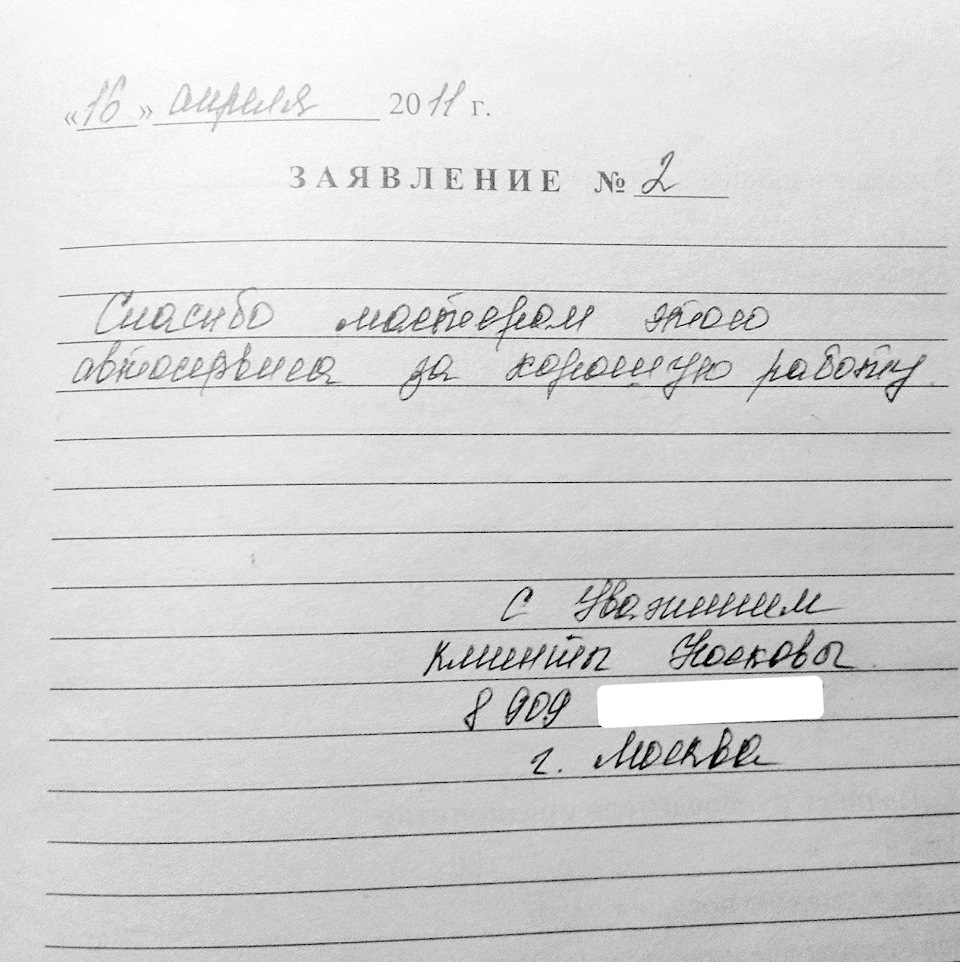 «16» апреля 2011 г.
ЗАЯВЛЕНИЕ № 2
Спасибо мастерам этого
автосервиса за хорошую работу.
С Уважением
клиенты Носковы.
8 909
г. Москва